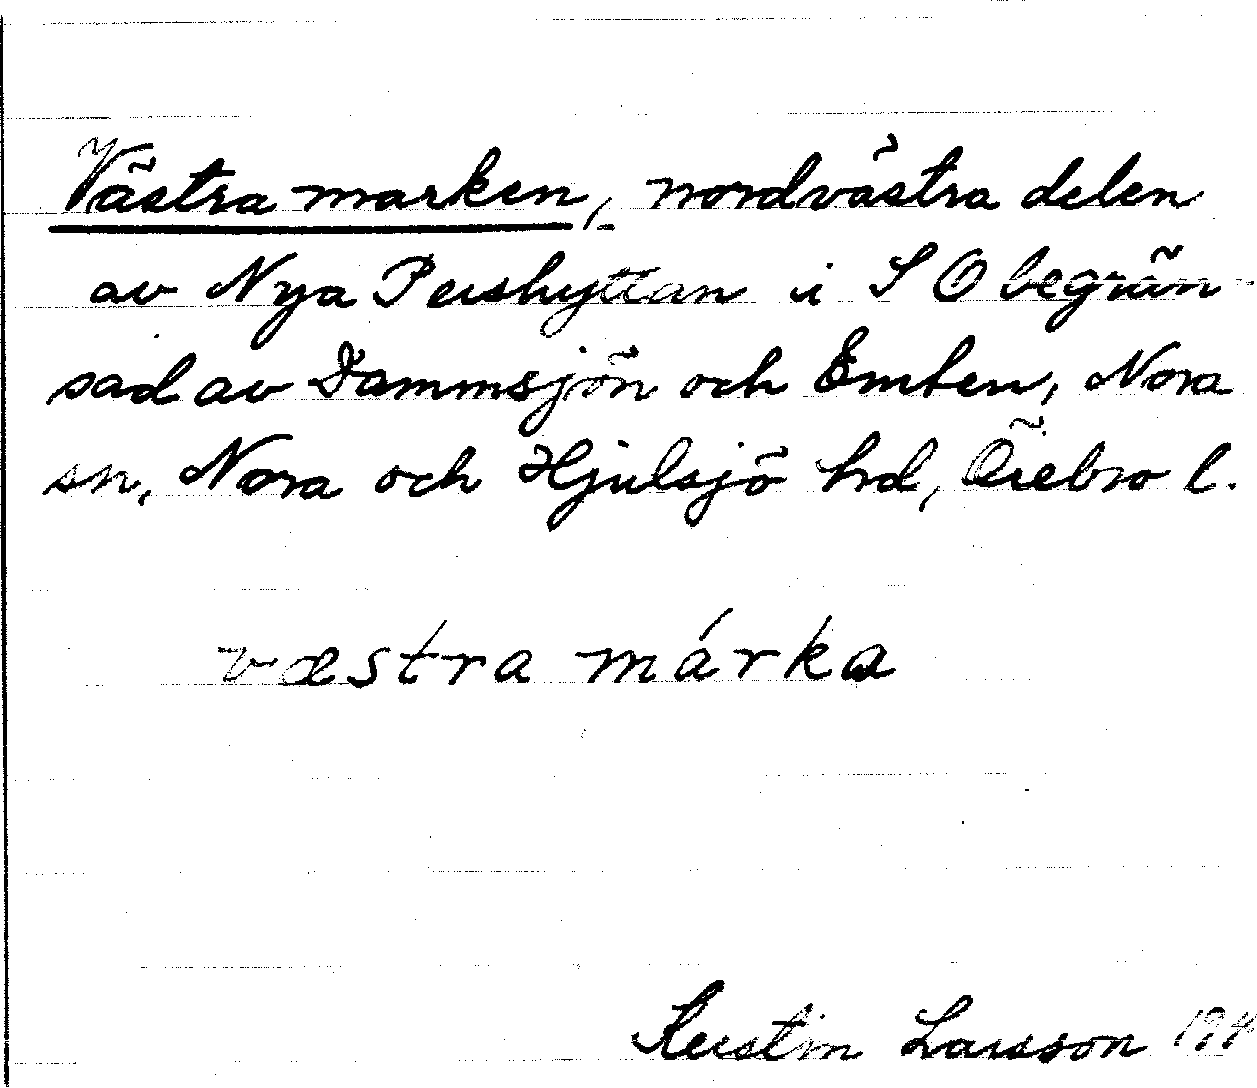 Västra marken, nordvästra delen
av Nya Pershyttan i S O begrän-
sad av Dammsjön och Emten, Nora
sn, Nora och Hjulsjö hrd, Örebro l.
væstra márka
Kerstin Larsson